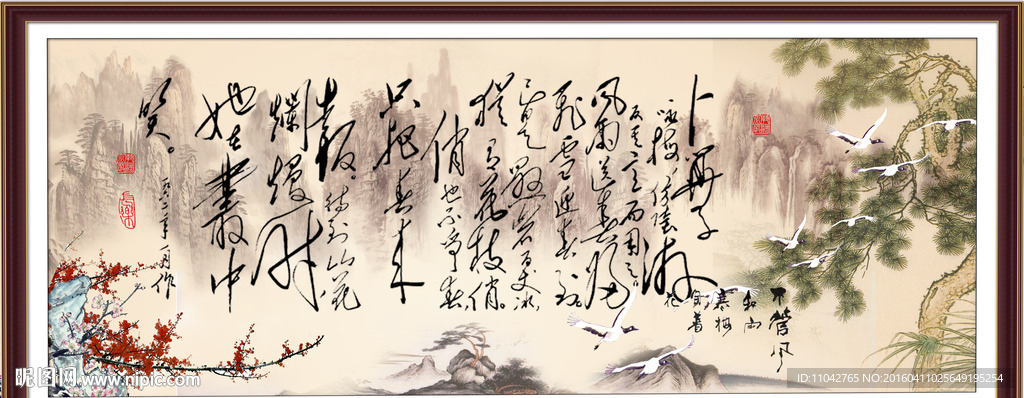 卜算子
咏梅 读陆游
反其意而用之
风雨送春归
飞雪迎春到
已是悬崖百丈冰
犹有花枝俏。
俏也不争春
只把春来
报。待到山花
烂熳时
她在丛中
笑。
年一月作
不管风
昵图网 www.nipic.com
ID:11042765 NO:20160411025649195254